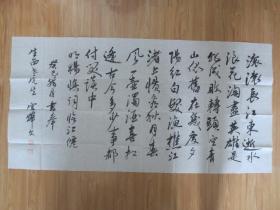 滚滚长江东逝水
浪花淘尽英雄是
非成败转头空青
山依旧在几度夕
阳红白发渔樵江
渚上惯看秋月春
风一壶浊酒喜相
逢古今多少事都
付笑谈中
明杨慎词临江仙